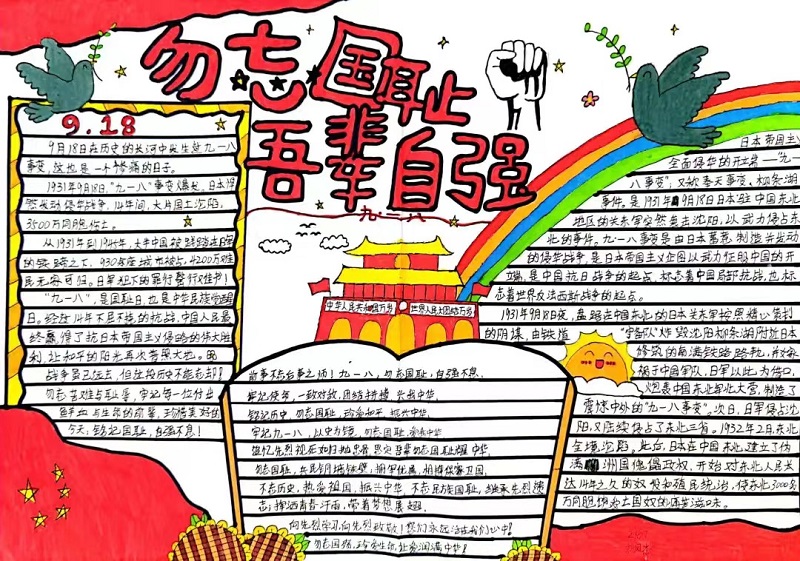 勿忘国耻
吾辈自强
九一八
9.18
9月18日在历史的长河中发生过九一八
事变,这也是一个惨痛的日子。
1931年9月18日,"九一八"事变爆发,日本悍
然发动侵华战争,14年间,大片国土沦陷,
3500万同胞伤亡。
从1931年到1945年,大半中国被践踏在日寇
的铁蹄之下,930座城市被占,4200万难
民无家可归。日军犯下的罪行罄竹难书!
"九一八",是国耻日,也是中华民族觉醒
日。经过14年不屈不挠的抗战,中国人民最
终赢得了抗日本帝国主义侵略的伟大胜
利,让和平的阳光再次普照大地。
战争虽已远去,但这段历史不能忘却!
勿忘苦难与耻辱,牢记每一位付出
鲜血与生命的前辈,珍惜美好的
今天,铭记国耻,自强不息!
中华人民共和国万岁
世界人民大团结万岁
前事不忘后事之师!九一八,勿忘国耻,自强不息。
牢记使命,一致对敌,团结拼搏
铭记历史,勿忘国耻,珍爱和平,振兴中华。
牢记九一八,以史为镜,勿忘国耻,
勿忘国耻
不忘历史,热爱祖国,振兴中华,不忘民族国耻,继承先烈遗
志;挥洒青春汗雨,带着梦想展翅。
向先烈学习,向先烈致敬!你们永远活在我们心中!
勿忘国殇
日本帝国主
全面侵华的开端—"九一
八事变",又称奉天事变、柳条湖
事件,是1931年9月18日日本驻中国东北
地区的关东军突然袭击沈阳,以武力侵占东
北的事件。九一八事变是由日本蓄意制造并发动
的侵华战争,是日本帝国主义企图以武力征服中国的开
端,是中国抗日战争的起点,标志着中国局部抗战,也标
志着世界反法西斯战争的起点。
1931年9月18日夜,盘踞在中国东北的日本关东军按照精心策划
的阴谋,由铁道"守备队"炸毁沈阳柳条湖附近日本
修筑的南满铁路路轨,并嫁
祸于中国军队,日军以此为借口,
炮轰中国东北军北大营,制造了
震惊中外的"九一八事变"。次日,日军侵占沈
阳,又陆续侵占了东北三省。1932年2月,东北
全境沦陷。此后,日本在中国东北建立了伪
满洲国傀儡政权,开始对东北人民长
达14年之久的奴役和殖民统治,使东北3000多
万同胞饱尝亡国奴的痛苦滋味。